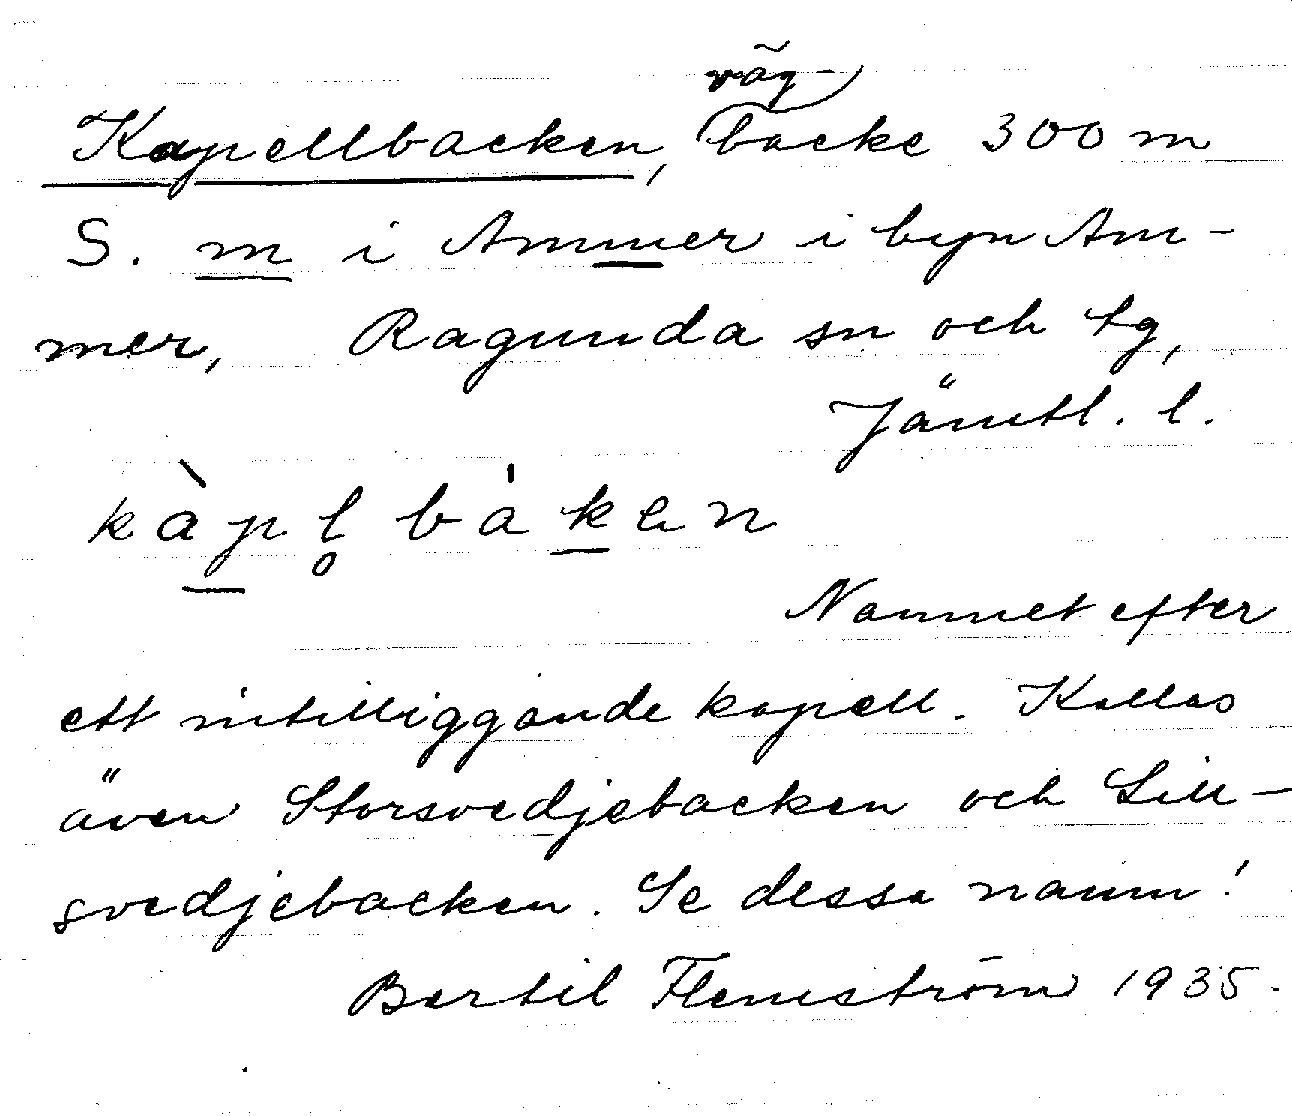 väg-
Kapellbacken, backe 300 m
S. m i Ammer i byn Am-
mer, Ragunda sn och tg,
Jämtl. l.
kàpl̥ bákен
Namnet efter
ett intilliggande kapell. Kallas
även Storsvedjebacken och Lill-
svedjebacken. Se dessa namn!
Bertil Flemström 1935.